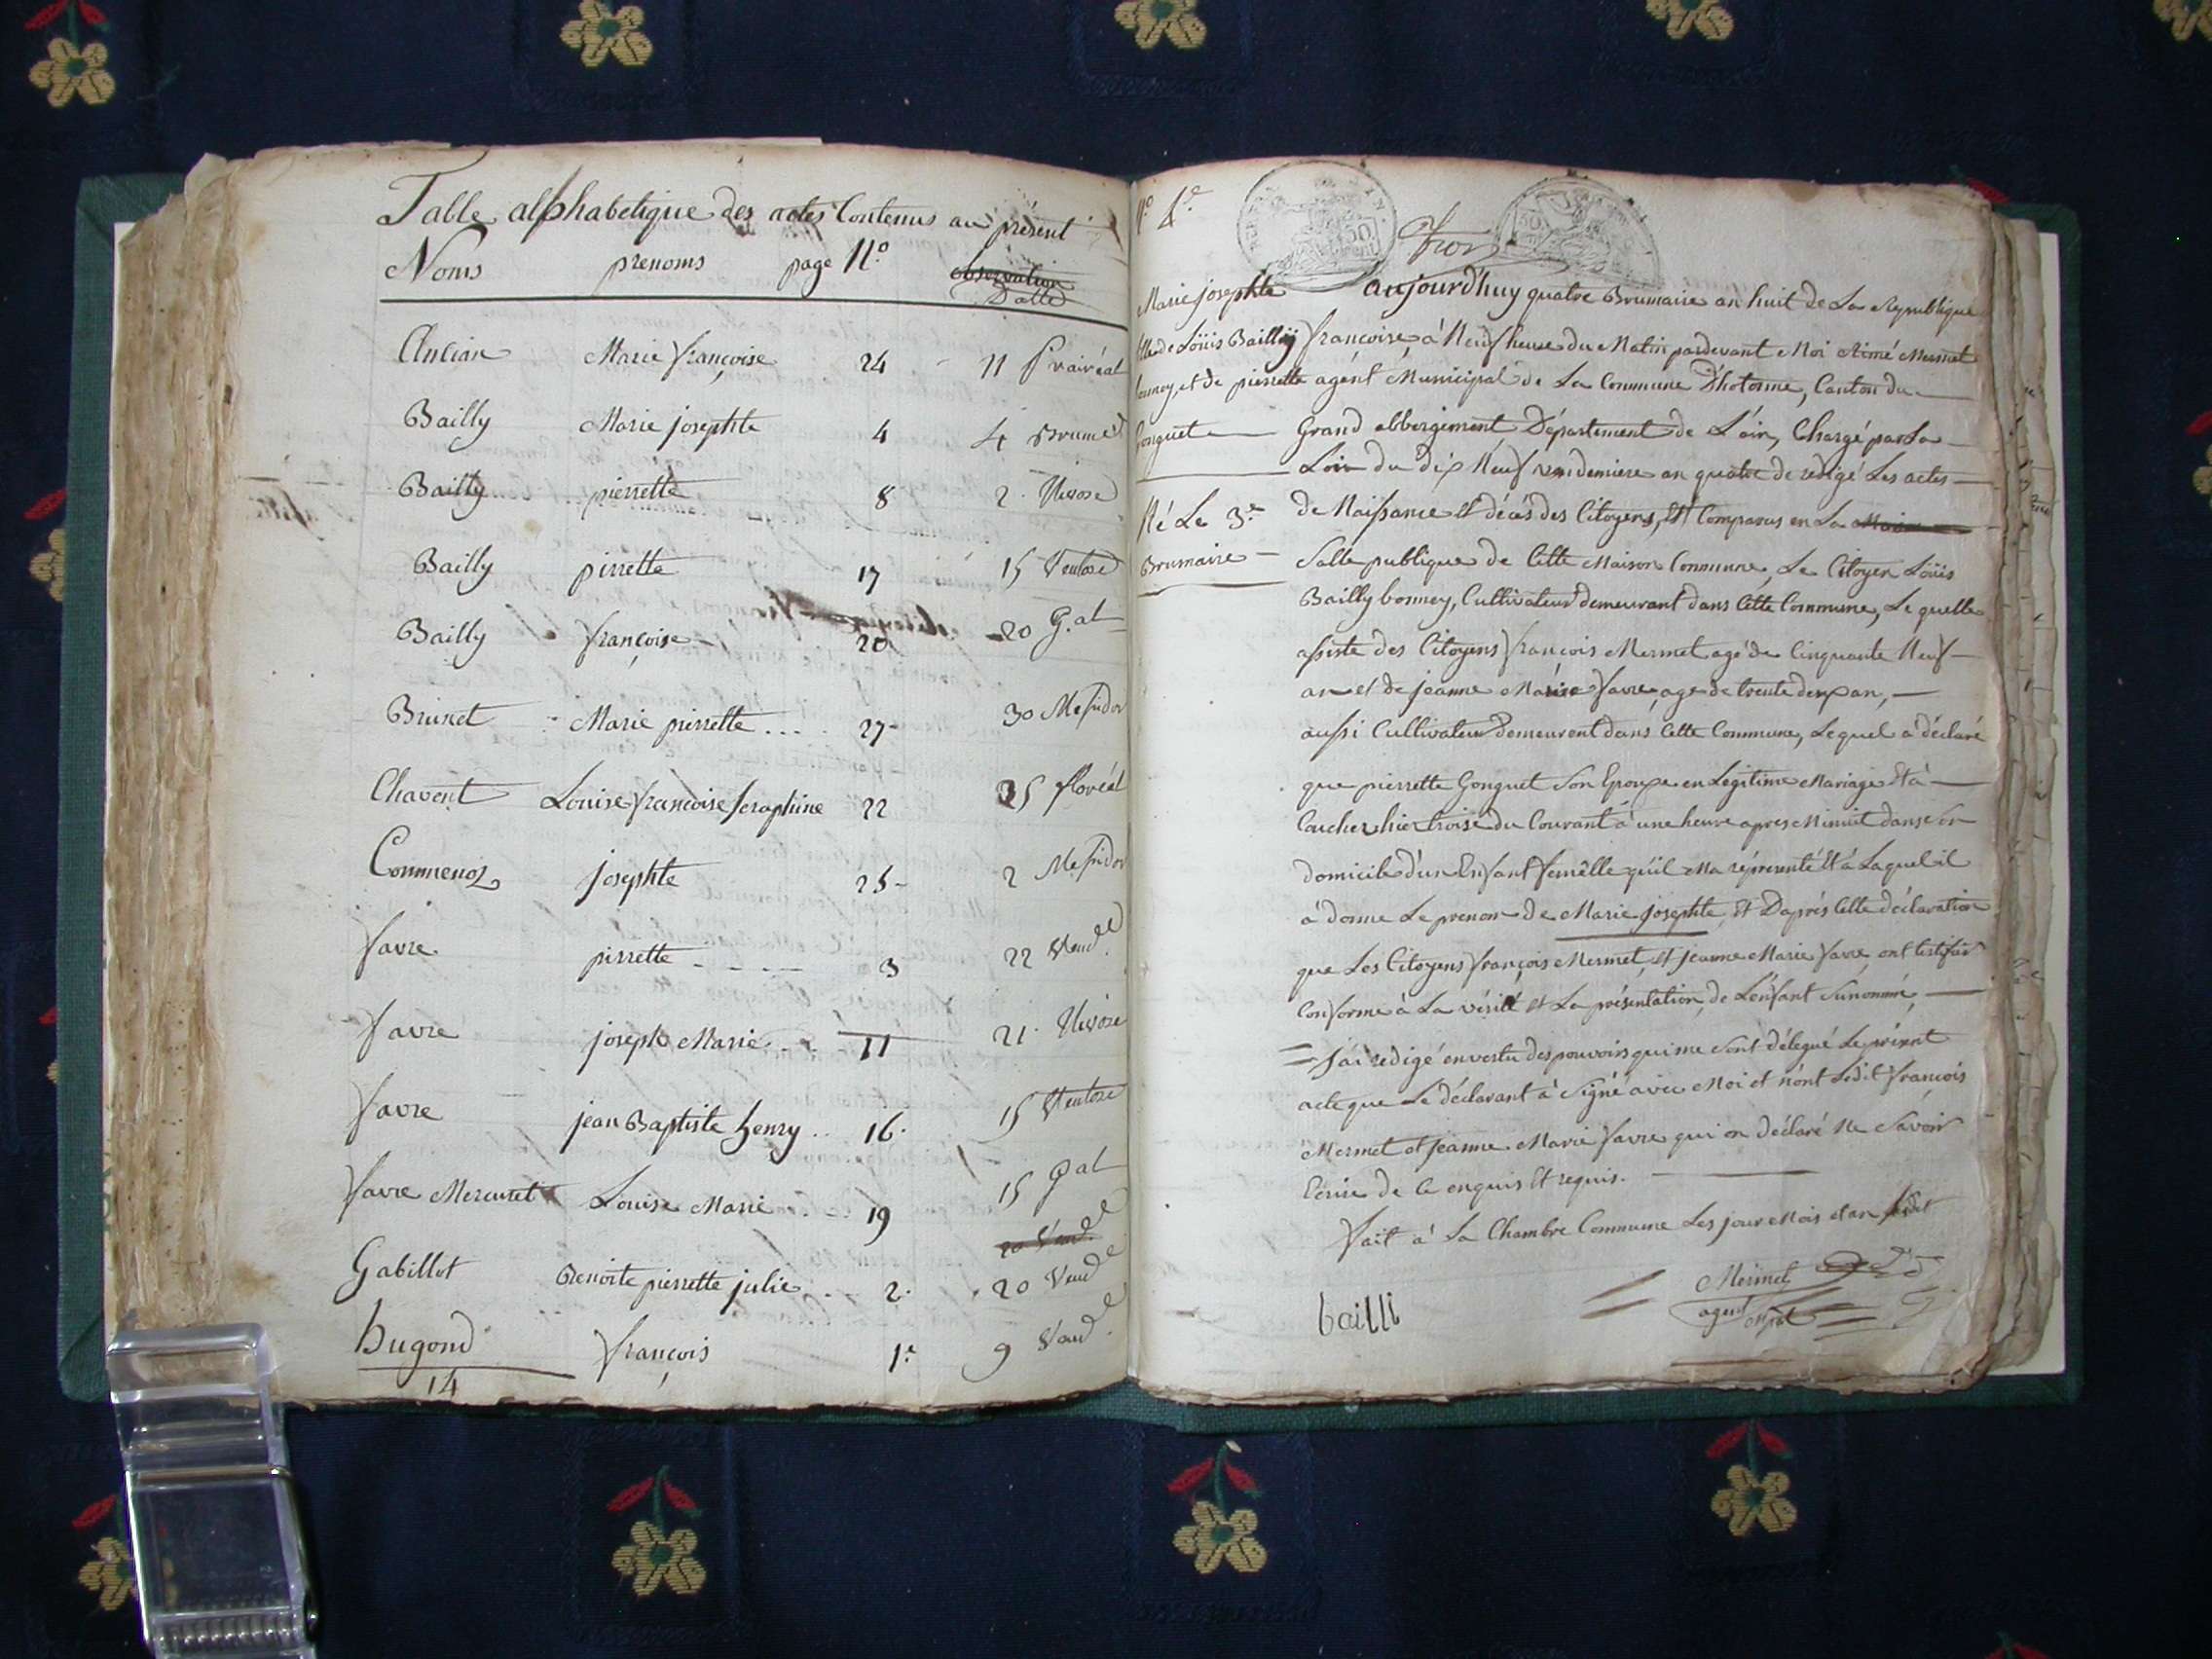 Table alphabetique des actes Contenus au présent
Noms prenoms page N.o observation
Datte
Ancian Marie françoise 24 11 Prairéal
Bailly Marie josephte 4 4 Brume
Bailly pierrette 8 2 Nivose
Bailly pirrette 17 15 Ventose
Bailly françoise 20 20 G.al
Brunet Marie pierrette 27 30 Messidor
Chavent Louise françoise seraphine 22 25 floréal
Commenoz josephte 25 2 Messidor
favre pirrette 3 22 Vend.e
favre joseph Marie 11 21 Nivose
favre jean Baptiste henry 16. 15 Ventose
favre Mercuret Louise Marie 19 15 G al
20 Vend.e
Gabillot Benoite pierrette julie 2. 20 Vend.e
hugond françois 1.e 9 Vend.e
14
N.o 4.e
Marie josephte
fille de Loüis Bailly
bonney, et de pierrette
Gonguet
Né Le 3.e
Brumaire
aujourd'huy quatre Brumaire an huit de La Republique
françoise, à Neuf heure du Matin pardevant Moi Aimé Mermet
agént Municipal de La Commune D'hotonne, Canton du
Grand abbergement Département de L'ain, Chargé par La
Loix du dix Neuf vendemiere an quatre de redigé Les actes
de Naissance et décés des Citoyens, Et Comparus en La
Salle publique de Cette Maison Commune, Le Citoyen Loüis
Bailly bonney, Cultivateur demeurant dans Cette Commune, Le quelle
assiste des Citoyens françois Mermet agé de Cinquante Neuf
an et de jeanne Marie favre, age de trente deux an,
aussi Cultivateur demeurent dans Cette Commune, Lequel à déclaré
que pierrette Gonguet Son Epouse en Legitime Mariage Et à
Coucher hier troise du Courant à une heure apres Minuit dans Son
domicile d'un Enfant femêlle qu'il Ma réprenenté Et à Laquel il
à donne Le prenom de Marie josephte, Et Daprés Cette déclaration
que Les Citoyens françois Mermet, et jeanne Marie favre, ont Certifier
Conforme à La vérité et La présentation de L'enfant Sunommé,
J'ai redigé en vertu des pouvoirs qui me Sont délegué Le présent
acte que Le déclarant à Signé avec Moi et n'ont Ledit françois
Mermet et jeanne Marie favre qui on déclaré Ne Savoir
Ecrire de Ce enquis Et requis.
fait à La Chambre Commune Les jour Mois et an
bailli
Mermet
agent